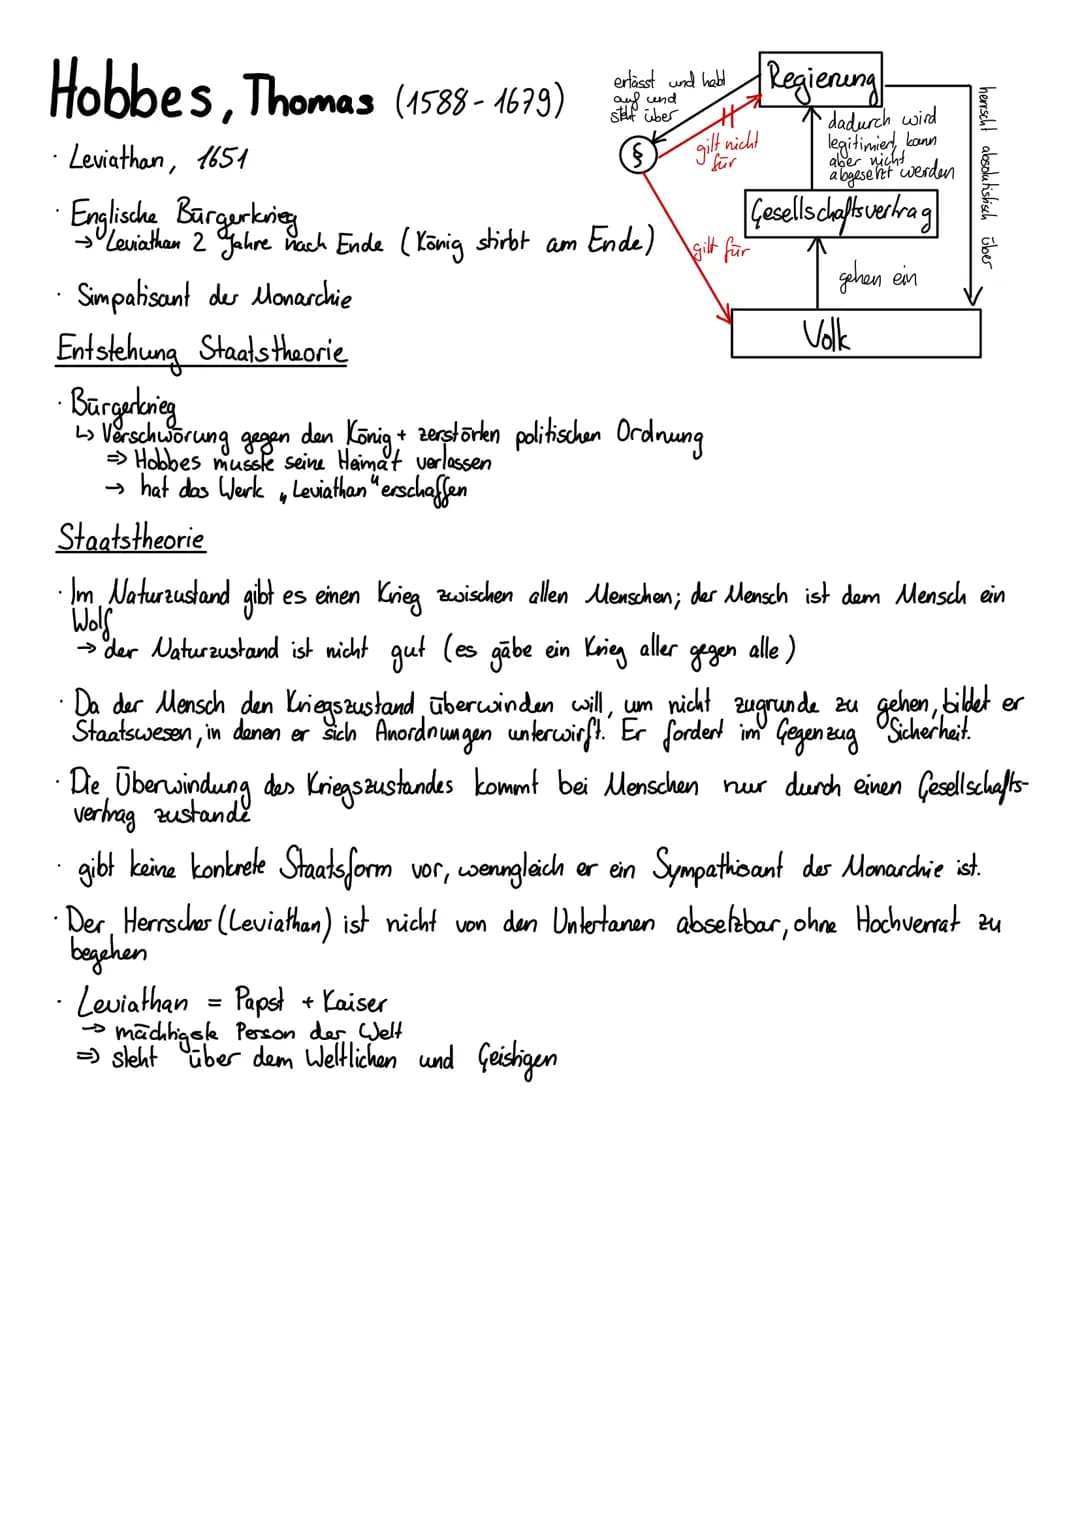 Hobbes, Thomas (1588 - 1679)
· Leviathan, 1651
· Englische Bürgerkrieg
→ Leviathan 2 Jahre nach Ende (König stirbt am Ende)
· Simpatisant der Monarchie
erlässt und hebt
auf und
steht über
§
Regierung
gilt nicht
für
dadurch wird
legitimiert, kann
aber nicht
abgesetzt werden
herrscht absolutistisch über
Gesellschaftsvertrag
gilt für
gehen ein
Volk
Entstehung Staatstheorie
· Bürgerkrieg
↳ Verschwörung gegen den König + zerstörten politischen Ordnung
⇒ Hobbes musste seine Heimat verlassen
→ hat das Werk „Leviathan" erschaffen
Staatstheorie
· Im Naturzustand gibt es einen Krieg zwischen allen Menschen; der Mensch ist dem Mensch ein
Wolf
→ der Naturzustand ist nicht gut (es gäbe ein Krieg aller gegen alle)
· Da der Mensch den Kriegszustand überwinden will, um nicht zugrunde zu gehen, bildet er
Staatswesen, in denen er sich Anordnungen unterwirft. Er fordert im Gegenzug Sicherheit.
· Die Überwindung des Kriegszustandes kommt bei Menschen nur durch einen Gesellschafts-
vertrag zustande
· gibt keine konkrete Staatsform vor, wenngleich er ein Sympathisant der Monarchie ist.
· Der Herrscher (Leviathan) ist nicht von den Untertanen absetzbar, ohne Hochverrat zu
begehen
· Leviathan = Papst + Kaiser
→ mächtigste Person der Welt
⇒ steht über dem Weltlichen und Geistigen